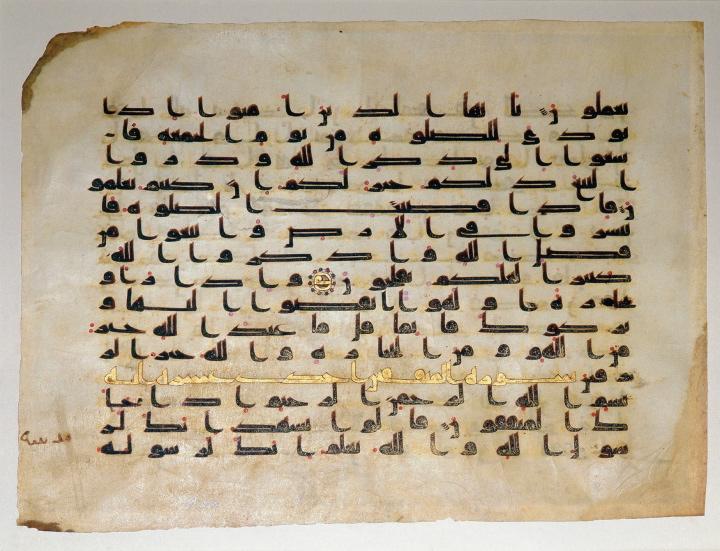 تعملون يايها الذين امنوا اذا
نودي للصلوة من يوم الجمعة فا
سعوا الى ذكر الله وذروا ا
لبيع ذلكم خير لكم ان كنتم تعلمو
ن فاذا قضيت الصلوة فا
نتشروا في الارض وابتغوا من
فضل الله واذكروا الله
كثيرا لعلكم تفلحون واذا راو
ا تجرة او لهوا انفضوا اليها و
تركوك قائما قل ما عند الله خير
من اللهو ومن التجرة والله خير الر
زقين سورة المنفقين احدى عشرة اية
بسم الله الرحمن الرحيم اذا جا
ك المنفقون قالوا نشهد انك لر
سول الله والله يعلم انك لرسوله